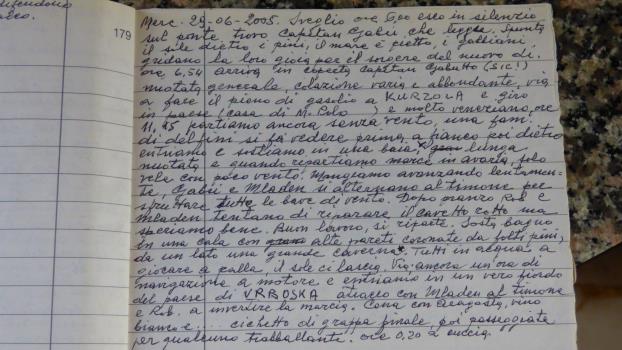 difendono
179
Merc. 29-06-2005. Sveglio ore 6,00 esco in silenzio
sul ponte trovo Capitan Gabii, che legge. Spunta
il sole dietro i pini, il mare è piatto, i gabbiani
gridano la loro gioia per il sorgere del nuovo dì.
ore 6,54 arriva in coperta Capitan Gabutto (sic!)
nuotata generale, colazione varia e abbondante, via
a fare il pieno di gasolio a KURZOLA e giro
in paese (casa di M. Polo ) e molto veneziano, ore
11,45 partiamo ancora senza vento, una fami
di delfini si fa vedere prima a fianco poi dietro
entriamo e sostiamo in una baia, lunga
nuotata e quando ripartiamo marcia in avaria, solo
vela con poco vento. Mangiamo avanzando lentamen-
te, Gabii e Mladen si alternano al timone per
sfruttare tutte le bave di vento. Dopo pranzo Rob e
Mladen tentano di riparare il cavetto rotto ma
speriamo bene. Buon lavoro, si riparte. Sosta bagno
in una cala con alte pareti coronate da folti pini,
da un lato una grande caverna. Tutti in acqua a
giocare a palla, il sole ci lascia. Via ancora un'ora di
navigazione a motore e entriamo in un vero fiordo
del paese di VRBOSKA attracco con Mladen al timone
e Rob. a inserire la marcia. Cena con aragosta, vino
bianco e ... cichetto di grappa finale, poi passeggiata
per qualcuno traballante. ore 0,20 a cuccia.